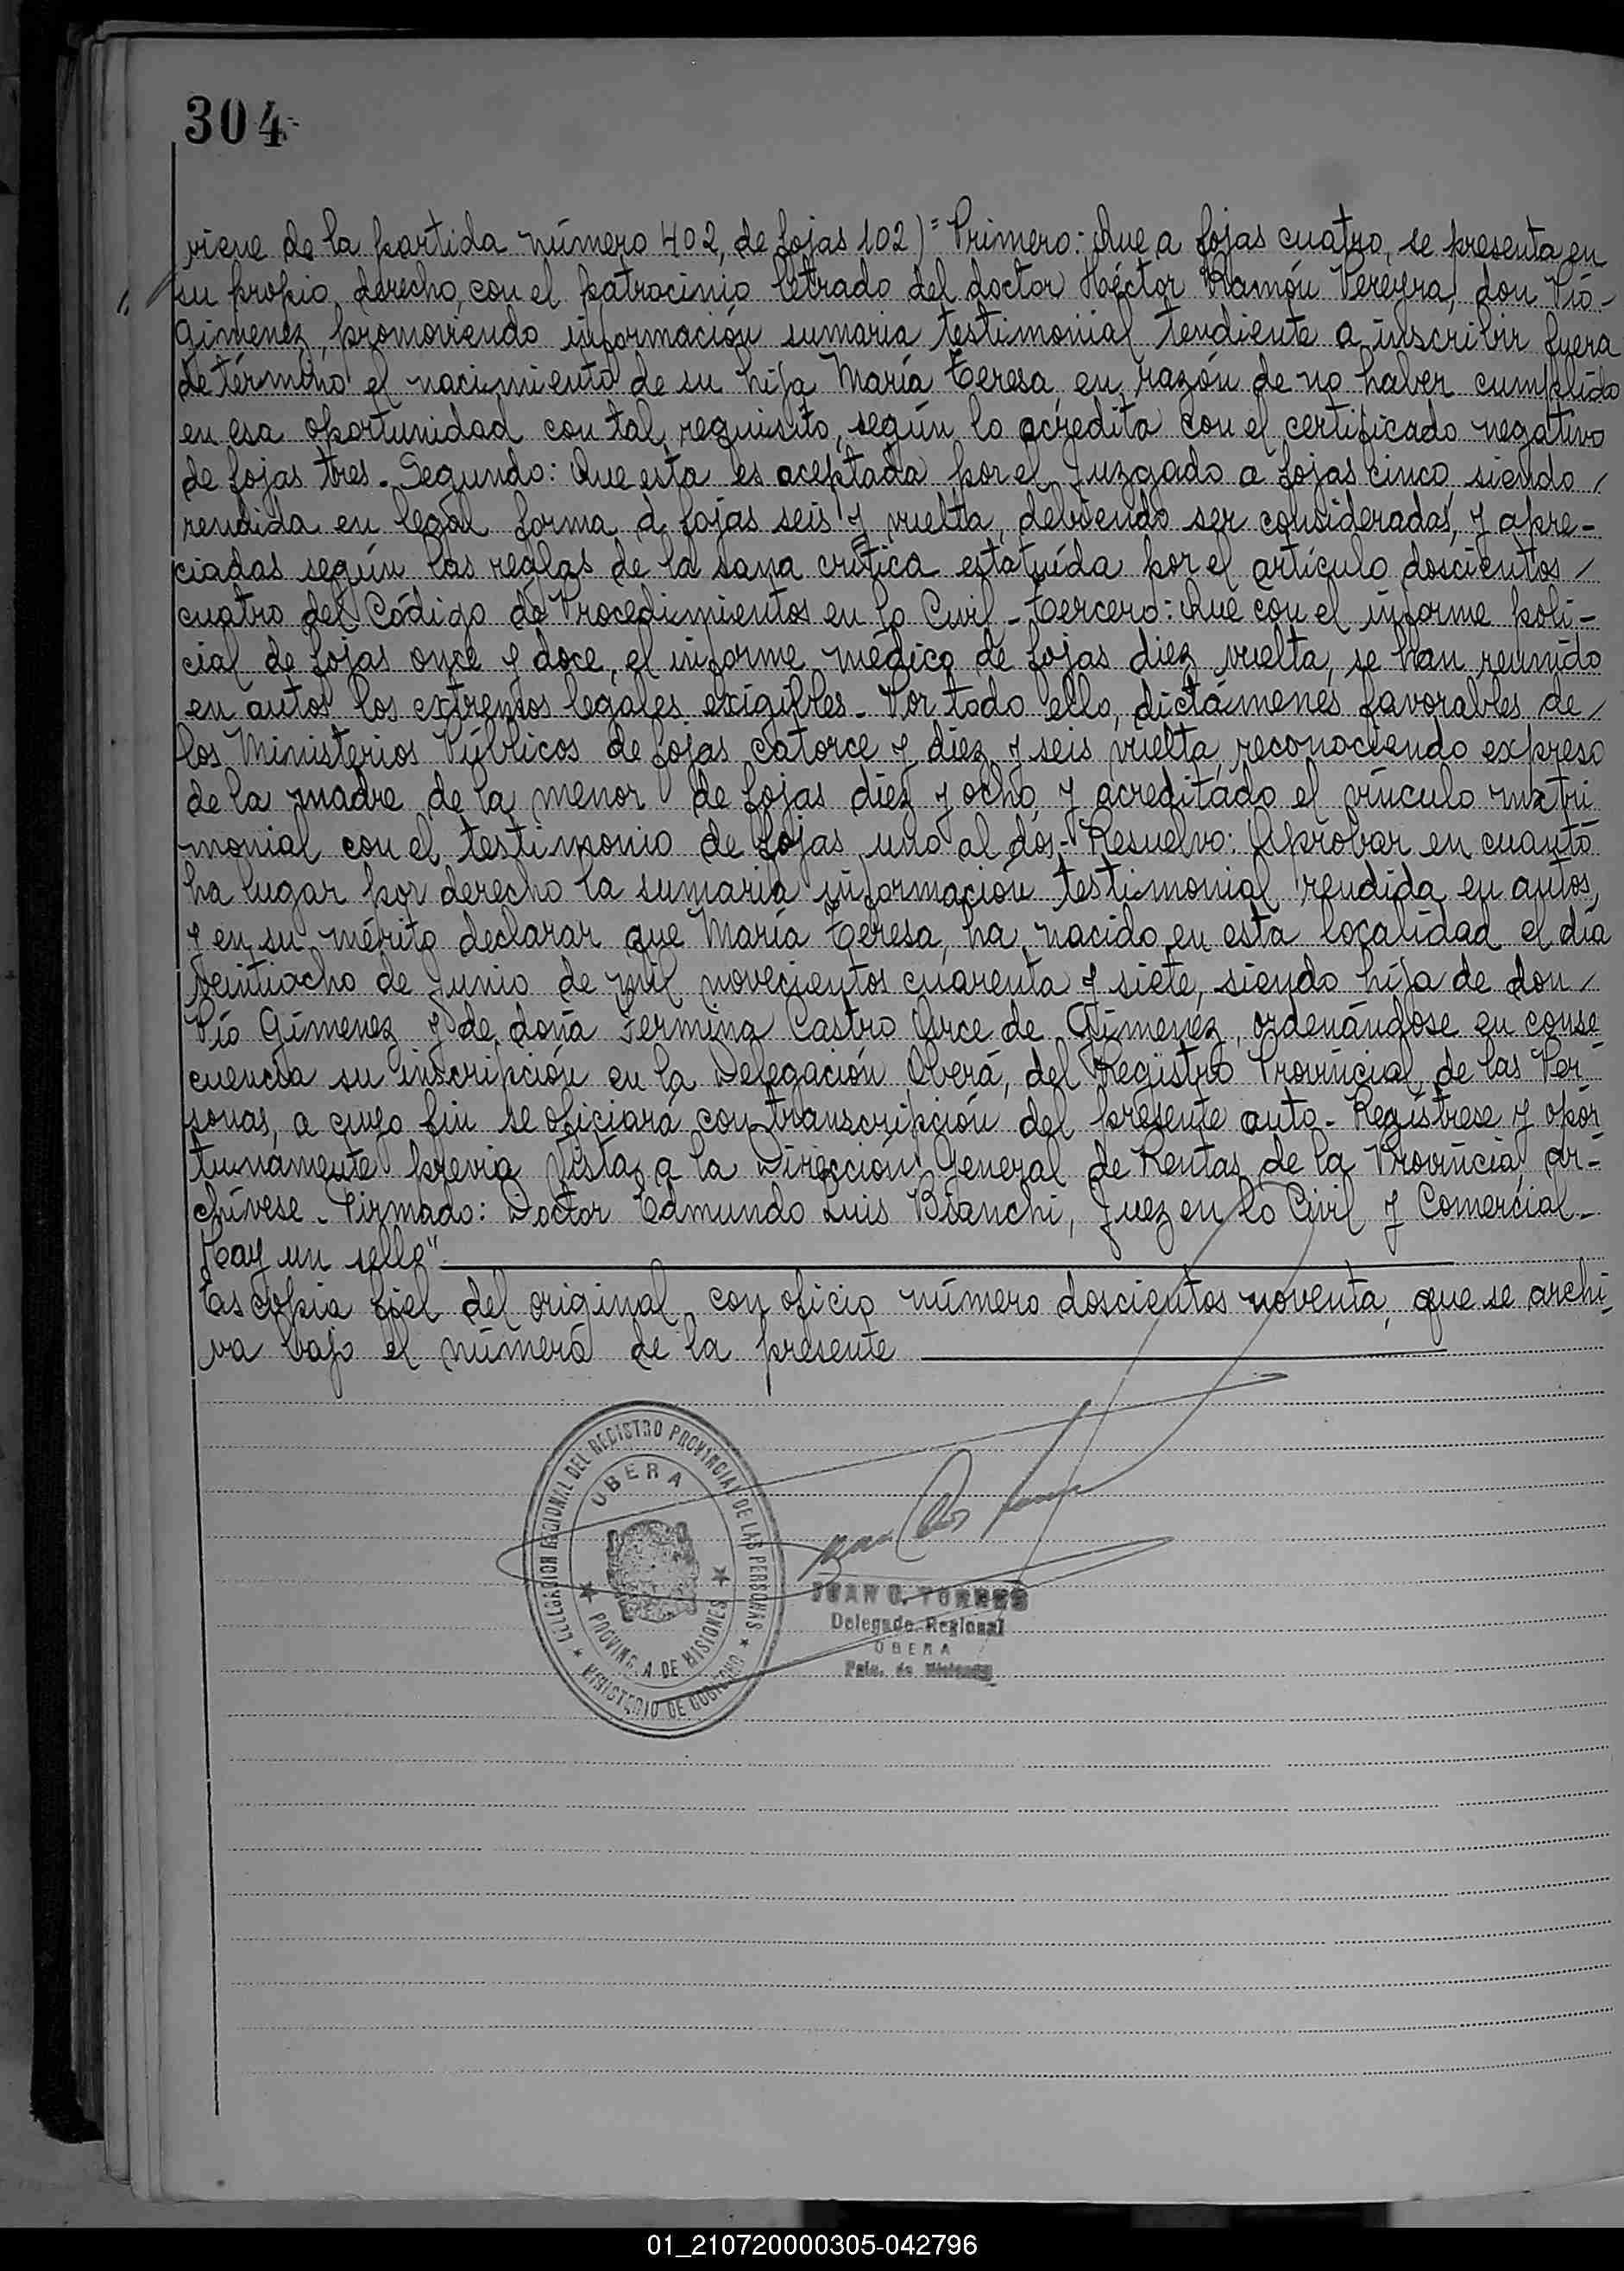 304
viene de la partida número 402, de fojas 102)= Primero: Que a fojas cuatro, se presenta en
su propio derecho, con el patrocinio letrado del doctor Héctor Ramón Pereyra, don Pío-
Gimenez, promoviendo información sumaria testimonial tendiente a inscribir fuera
de término el nacimiento de su hija María Teresa, en razón de no haber cumplido
en esa oportunidad con tal requisito, según lo acredita con el certificado negativo
de fojas tres. Segundo: Que esta es aceptada por el Juzgado a fojas cinco, siendo /
rendida en legal forma a fojas seis y vuelta, debiendo ser consideradas, y apre-
ciadas según las reglas de la sana crítica estatuída por el artículo doscientos /
cuatro del Código de Procedimientos en lo Civil - Tercero: Que con el informe poli-
cial de fojas once y doce, el informe médico de fojas diez vuelta, se han reunido
en autos los extremos legales exigibles. Por todo ello, dictámenes favorables de /
los Ministerios Públicos de fojas catorce y diez y seis vuelta, reconociendo expreso
de la madre de la menor de fojas diez y ocho y acreditado el vínculo matri
monial con el testimonio de fojas uno al dos- Resuelvo: Aprobar en cuanto
ha lugar por derecho la sumaria información testimonial rendida en autos,
y en su mérito declarar que María Teresa, ha nacido en esta localidad el día
veintiocho de Junio de mil novecientos cuarenta y siete, siendo hija de don /
Pío Gimenez y de doña Fermina Castro Arce de Gimenez, ordenándose en conse
cuencia su inscripción en la Delegación Oberá, del Registro Provincial de las Per
sonas, a cuyo fin se oficiará con transcripción del presente auto- Regístrese y opor
tunamente previa vista a la Dirección General de Rentas de la Provincia ar-
chívese. Firmado: Doctor Edmundo Luis Bianchi, Juez en lo Civil y Comercial-
Hay un sello".
Es copia fiel del original, con oficio número doscientos noventa, que se archi
va bajo el número de la presente
DELEGACION REGIONAL DEL REGISTRO PROVINCIAL DE LAS PERSONAS
OBERA
PROVINCIA DE MISIONES
MINISTERIO DE GOBIERNO
JUAN C. TORRES
Delegado Regional
OBERA
Pcia. de Misiones
01_210720000305-042796